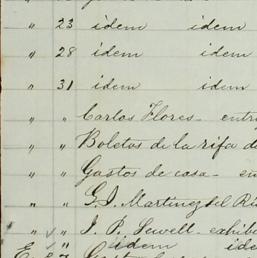 " 23 idem idem
" 28 idem idem
" 31 idem idem
" " Carlos Flores - entr
" " Boletos de la rifa de
" " Gastos de casa - en
" " G. I. Martinez del Ri
" " J. P. Sewell - exhib
" idem ide